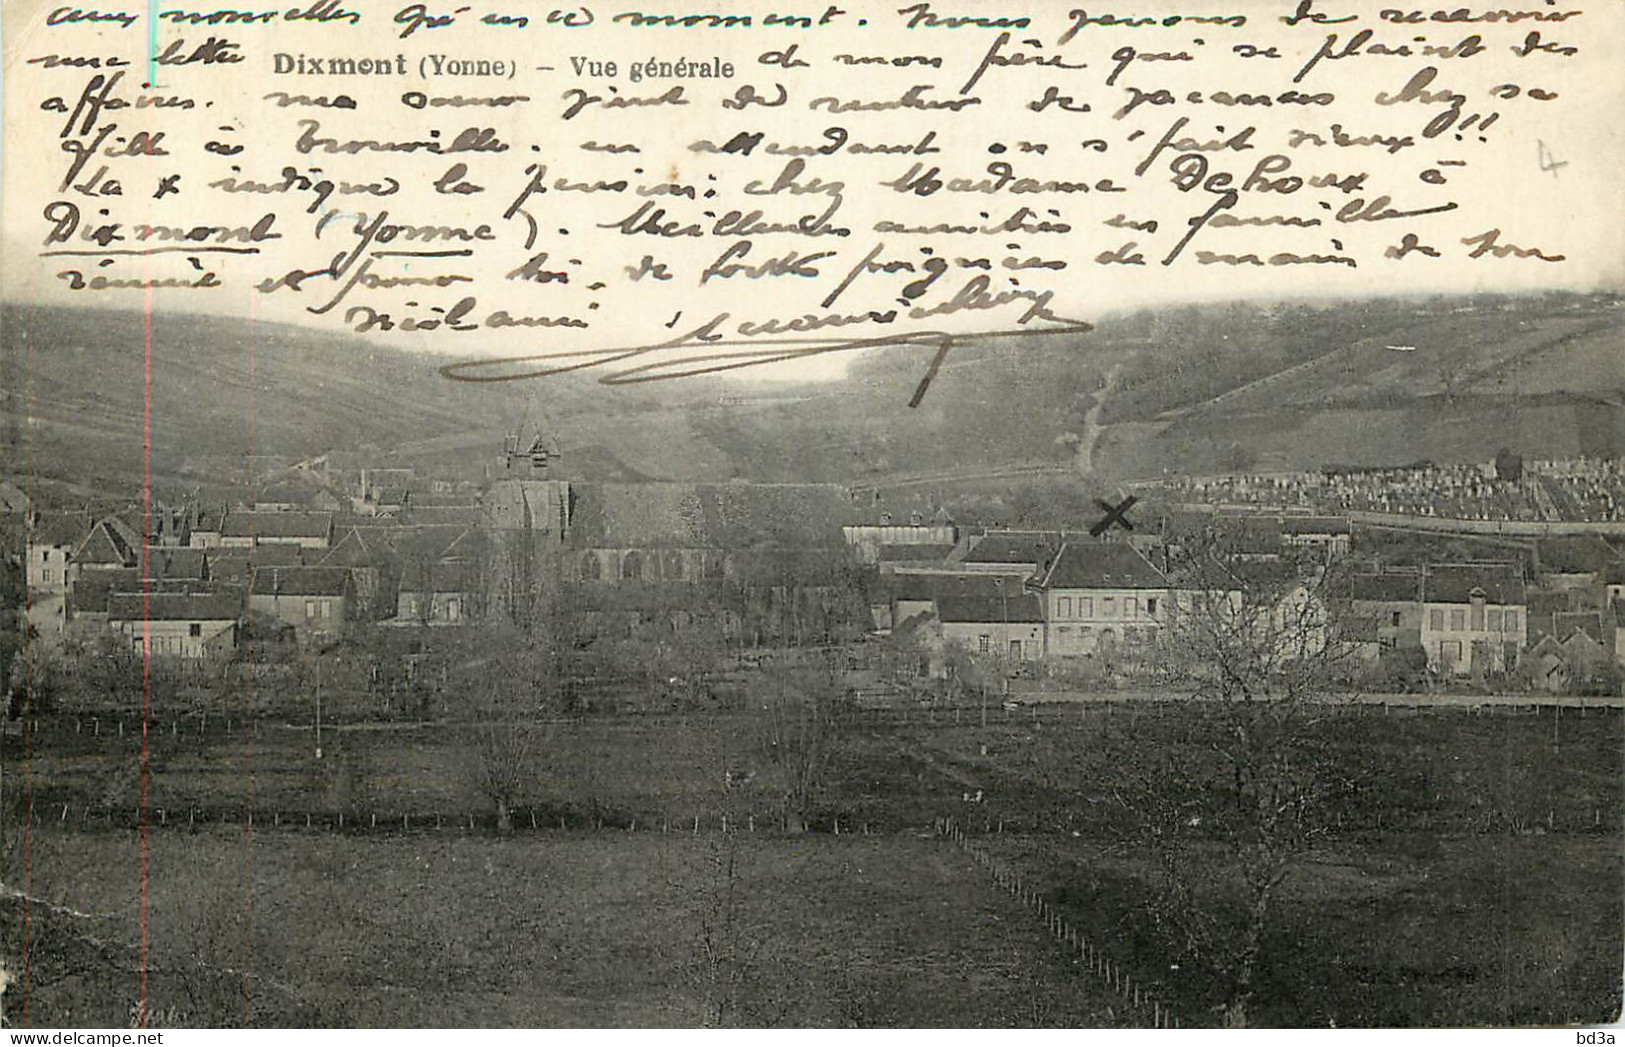 aux nouvelles qu'en ce moment. Nous venons de recevoir
une lettre de mon frère qui se plaint des
Dixmont (Yonne) – Vue générale
affaires. ma soeur vient de rentrer de vacances chez sa
fille à Trouville. en attendant on s'fait vieux!!
La x indique la pension: chez Madame Dehoux à
Dixmont (Yonne). Meilleures amitiés en famille
réunie et pour toi, de fortes poignées de main de ton
vieil ami
4
delcampe.net
bd3a